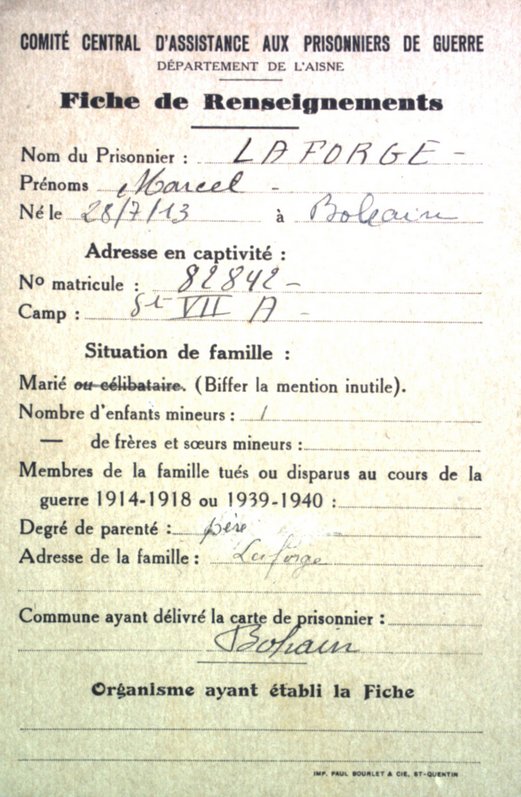 COMITÉ CENTRAL D'ASSISTANCE AUX PRISONNIERS DE GUERRE
DÉPARTEMENT DE L'AISNE
Fiche de Renseignements
Nom du Prisonnier : LAFORGE -
Prénoms Marcel -
Né le 28/7/13 à Bohain
Adresse en captivité :
No matricule : 82842 -
Camp : St VII A -
Situation de famille :
Marié ou célibataire. (Biffer la mention inutile).
Nombre d'enfants mineurs : 1
— de frères et sœurs mineurs :
Membres de la famille tués ou disparus au cours de la
guerre 1914-1918 ou 1939-1940 :
Degré de parenté : père
Adresse de la famille : Laforge
Commune ayant délivré la carte de prisonnier :
Bohain
Organisme ayant établi la Fiche
IMP. PAUL BOURLET & CIE, ST-QUENTIN